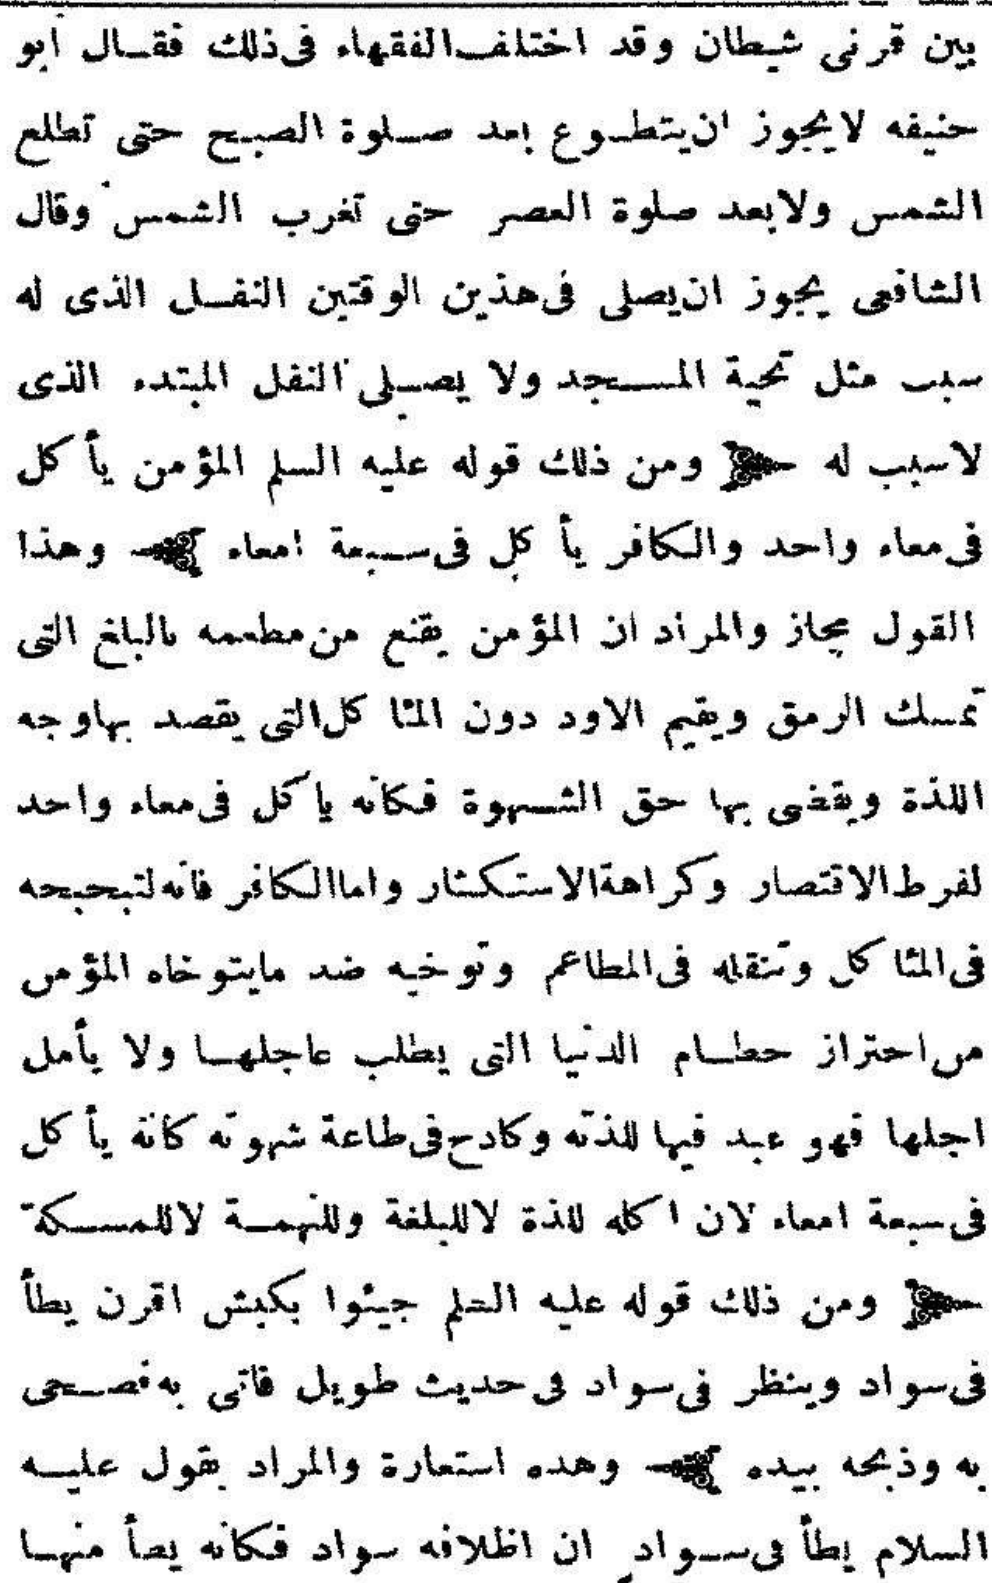 بين قرنى شيطان وقد اختلف الفقهاء فى ذلك فقال ابو
حنيفه لا يجوز ان يتطوع بعد صلوة الصبح حتى تطلع
الشمس ولا بعد صلوة العصر حتى تغرب الشمس وقال
الشافعى يجوز ان يصلى فى هذين الوقتين النفل الذى له
سبب مثل تحية المسجد ولا يصلى النفل المبتدء الذى
لا سبب له ومن ذلك قوله عليه السلم المؤمن يأكل
فى معاء واحد والكافر يأكل فى سبعة امعاء وهذا
القول مجاز والمراد ان المؤمن يقنع من مطعمه بالبلغ التى
تمسك الرمق ويقيم الاود دون المئاكل التى يقصد بها وجه
اللذة ويقضى بها حق الشهوة فكانه ياكل فى معاء واحد
لفرط الاقتصار وكراهة الاستكثار واما الكافر فانه لتبحبحه
فى المئاكل وتنقله فى المطاعم وتوخيه ضد مايتوخاه المؤمن
من احتراز حطام الدنيا التى يطلب عاجلها ولا يأمل
اجلها فهو عبد فيها للذته وكادح فى طاعة شهوته كانه يأكل
فى سبعة امعاء لان اكله للذة لا للبلغة وللنهمة لا للمسكة
ومن ذلك قوله عليه السلم جيئوا بكبش اقرن يطأ
فى سواد وينظر فى سواد فى حديث طويل فاتى به فضحى
به وذبحه بيده وهده استعارة والمراد بقول عليه
السلام يطأ فى سواد ان اظلافه سواد فكانه يطأ منها